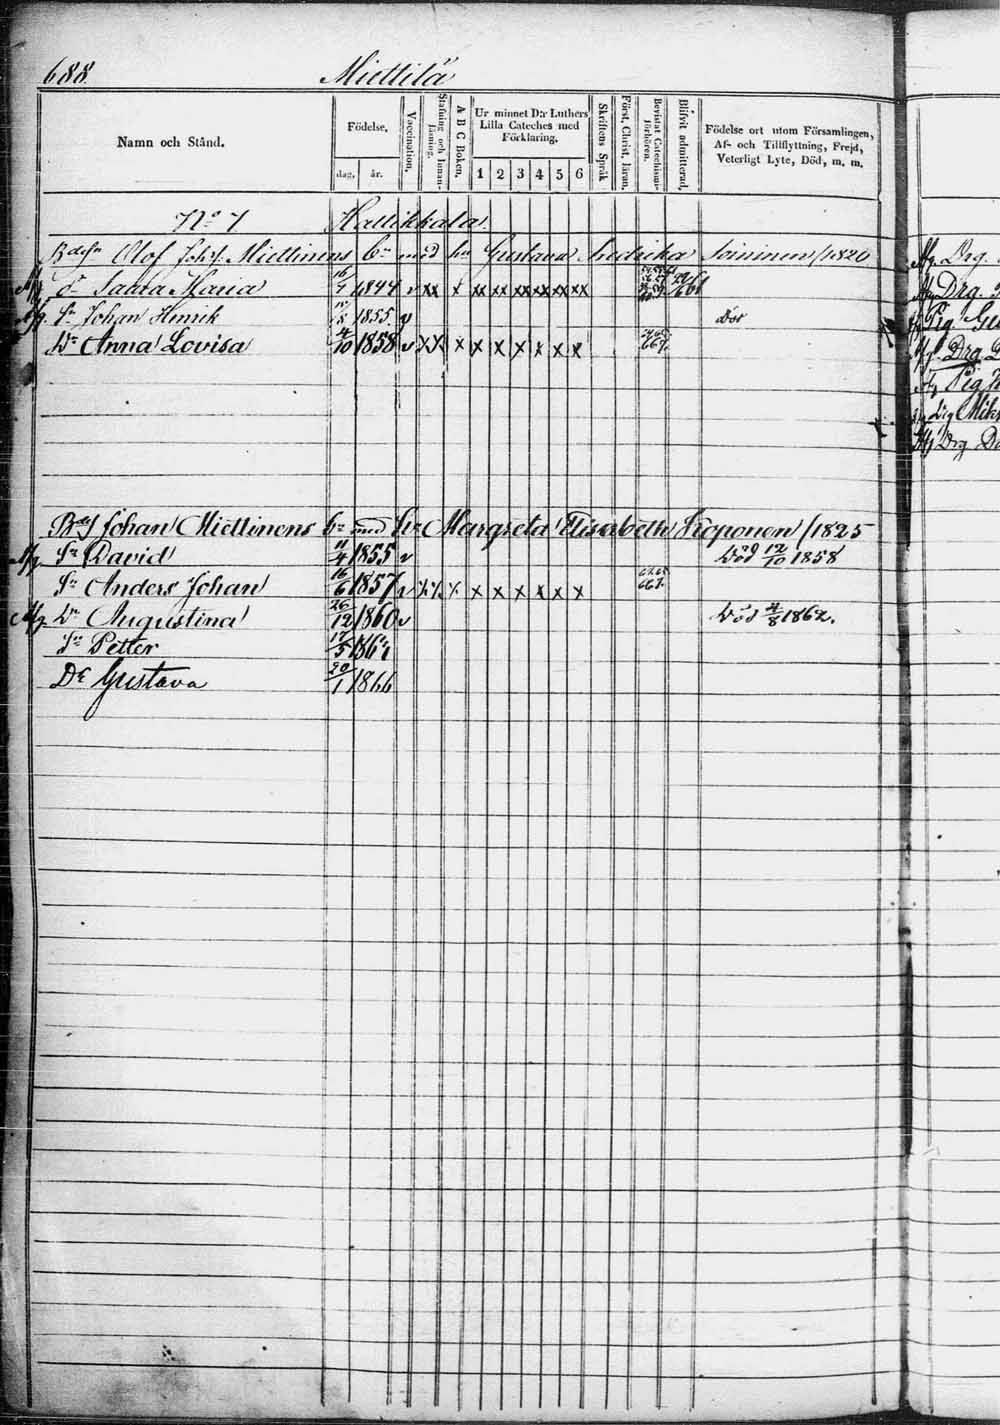 688. Miettilä
Namn och Stånd. Födelse, dag, år. Vaccination. Stafning och Innanläsning. A B C Boken. Ur minnet D:r Luthers Lilla Cateches med Förklaring. 1 2 3 4 5 6 Skriftens Språk. Först. Christ. läran. Bevistat Catechismiförhören. Blifvit admitterad. Födelse ort utom Församlingen, Af- och Tillflyttning, Frejd, Veterligt Lyte, Död, m. m.
No 7 Hallikkala
Olof Joh:s Miettinens bn med hu Gustava Fredrika Soininen /1820
Afg Dr Saara Maria 4 1844 v xx x xx xx xx xx xx xx
Afg Sn Johan Henrik 8 1855 v Död
Dr Anna Lovisa 4/10 1858 v xx x x x x x x x
Johan Miettinens bn med hu Margreta Elisabeth Kroponen /1825
Afg Sn David 11/4 1855 v Död 12/10 1858
Sn Anders Johan 16/6 1857 v x x x x x x x x x
Afg Dr Augustina 26/12 1860 v Död 4/8 1862.
Sn Petter 17/5 186
Dr Gustava 20/1 1866
Afg Drg
Drg
Pig
Drg
Pig
Drg Mik
Drg Da